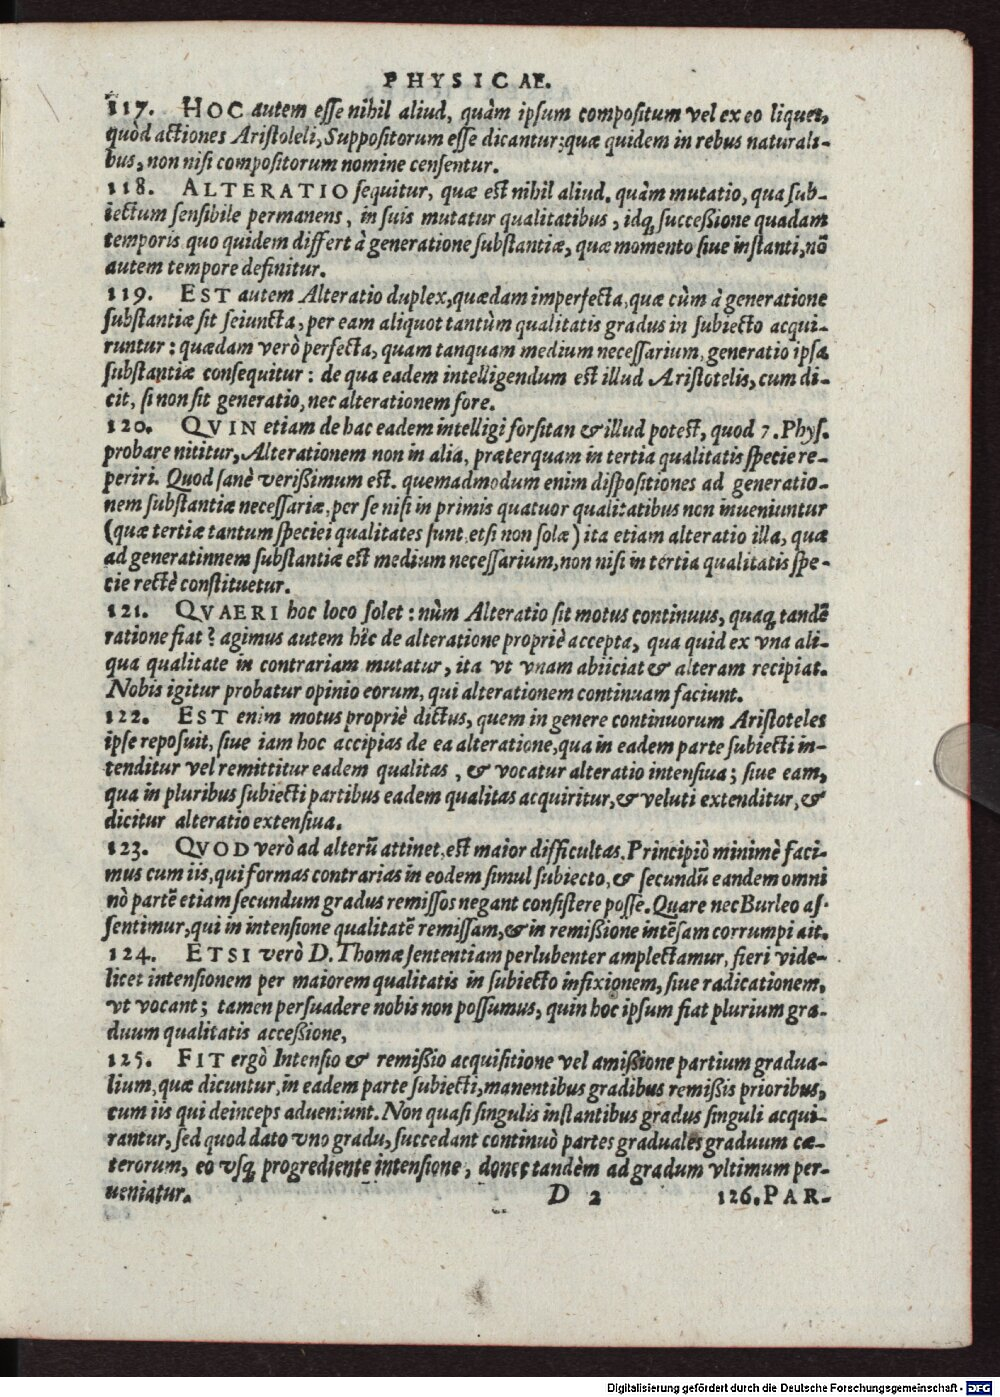 PHYSICAE.
117. HOC autem esse nihil aliud, quàm ipsum compositum vel ex eo liquet,
quòd actiones Aristoleli, Suppositorum esse dicantur: quæ quidem in rebus naturali-
bus, non nisi compositorum nomine censentur.
118. ALTERATIO sequitur, quæ est nihil aliud, quàm mutatio, qua sub-
iectum sensibile permanens, in suis mutatur qualitatibus, idq́ successione quadam
temporis quo quidem differt à generatione substantiæ, quæ momento siue instanti, nõ
autem tempore definitur.
119. EST autem Alteratio duplex, quædam imperfecta, quæ cùm à generatione
substantiæ sit seiuncta, per eam aliquot tantùm qualitatis gradus in subiecto acqui-
runtur: quædam verò perfecta, quam tanquam medium necessarium, generatio ipsa
substantiæ consequitur: de qua eadem intelligendum est illud Aristotelis, cum di-
cit, si non sit generatio, nec alterationem fore.
120. QVIN etiam de hac eadem intelligi forsitan & illud potest, quod 7. Phys.
probare nititur, Alterationem non in alia, præterquam in tertia qualitatis specie re-
periri. Quod sanè verißimum est. quemadmodum enim dispositiones ad generatio-
nem substantiæ necessariæ, per se nisi in primis quatuor qualitatibus non inueniuntur
(quæ tertiæ tantum speciei qualitates sunt, etsi non solæ) ita etiam alteratio illa, quæ
ad generatinnem substantiæ est medium necessarium, non nisi in tertia qualitatis spe-
cie rectè constituetur.
121. QVAERI hoc loco solet: nùm Alteratio sit motus continuus, quaq́ tandẽ
ratione fiat? agimus autem hîc de alteratione propriè accepta, qua quid ex vna ali-
qua qualitate in contrariam mutatur, ita vt vnam abiiciat & alteram recipiat.
Nobis igitur probatur opinio eorum, qui alterationem continuam faciunt.
122. EST enim motus propriè dictus, quem in genere continuorum Aristoteles
ipse reposuit, siue iam hoc accipias de ea alteratione, qua in eadem parte subiecti in-
tenditur vel remittitur eadem qualitas, & vocatur alteratio intensiua; siue eam,
qua in pluribus subiecti partibus eadem qualitas acquiritur, & veluti extenditur, &
dicitur alteratio extensiua.
123. QVOD verò ad alterũ attinet, est maior difficultas. Principiò minimè faci-
mus cum iis, qui formas contrarias in eodem simul subiecto, & secundũ eandem omni
nò partẽ etiam secundum gradus remissos negant consistere posse. Quare nec Burleo as-
sentimur, qui in intensione qualitatẽ remissam, & in remißione intẽsam corrumpi ait.
124. ETSI verò D. Thomæ sententiam perlubenter amplectamur, fieri vide-
licet intensionem per maiorem qualitatis in subiecto infixionem, siue radicationem,
vt vocant; tamen persuadere nobis non possumus, quin hoc ipsum fiat plurium gra-
duum qualitatis acceßione,
125. FIT ergò Intensio & remißio acquisitione vel amißione partium gradua-
lium, quæ dicuntur, in eadem parte subiecti, manentibus gradibus remißis prioribus,
cum iis qui deinceps adueniunt. Non quasi singulis instantibus gradus singuli acqui-
rantur, sed quod dato vno gradu, succedant continuò partes graduales graduum cæ-
terorum, eo vsq́ progrediente intensione, donec tandèm ad gradum vltimum per-
ueniatur.
D 2
126. PAR-
Digitalisierung gefördert durch die Deutsche Forschungsgemeinschaft - DFG